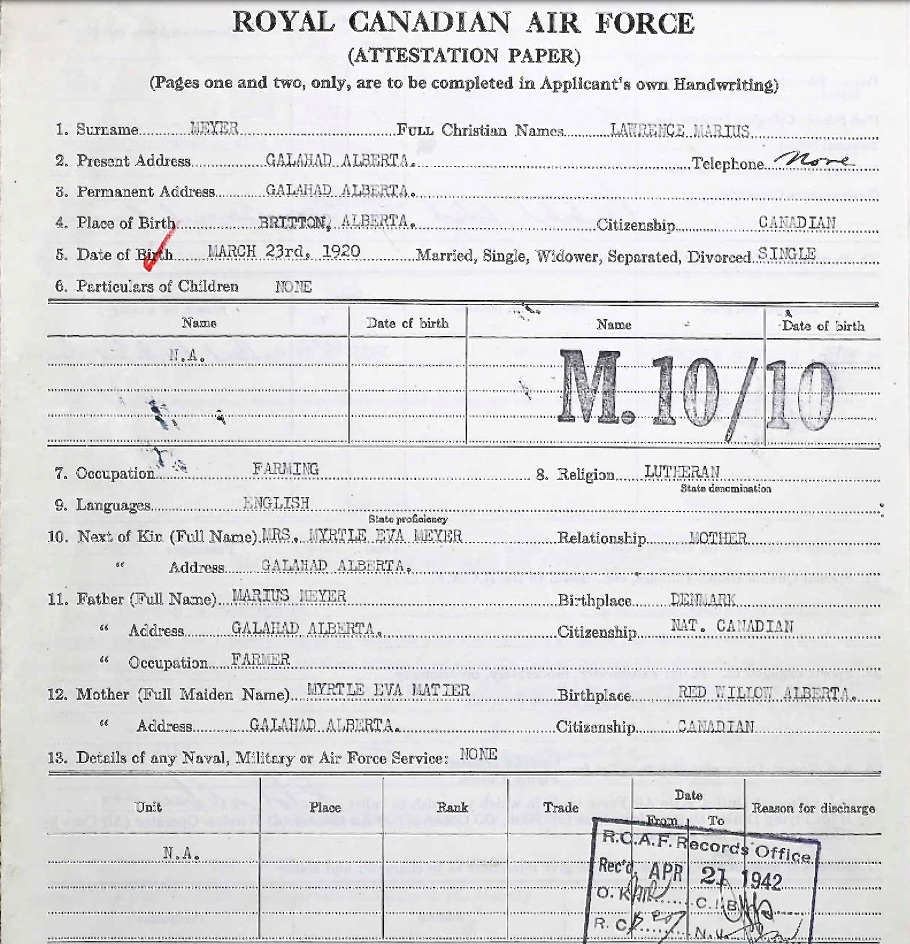 ROYAL CANADIAN AIR FORCE
(ATTESTATION PAPER)
(Pages one and two, only, are to be completed in Applicant's own Handwriting)
1. Surname MEYER FULL Christian Names LAWRENCE MARIUS
2. Present Address GALAHAD ALBERTA. Telephone None
3. Permanent Address GALAHAD ALBERTA.
4. Place of Birth BRITTON, ALBERTA. Citizenship CANADIAN
5. Date of Birth MARCH 23rd, 1920 Married, Single, Widower, Separated, Divorced SINGLE
6. Particulars of Children NONE
Name Date of birth Name Date of birth
N.A.
M. 10/10
7. Occupation FARMING 8. Religion LUTHERAN
State denomination
9. Languages ENGLISH
State proficiency
10. Next of Kin (Full Name) MRS. MYRTLE EVA MEYER Relationship MOTHER
" Address GALAHAD ALBERTA.
11. Father (Full Name) MARIUS MEYER Birthplace DENMARK
" Address GALAHAD ALBERTA. Citizenship NAT. CANADIAN
" Occupation FARMER
12. Mother (Full Maiden Name) MYRTLE EVA MATIER Birthplace RED WILLOW ALBERTA.
" Address GALAHAD ALBERTA. Citizenship CANADIAN
13. Details of any Naval, Military or Air Force Service: NONE
Unit Place Rank Trade Date Reason for discharge
From To
N.A.
R.C.A.F. Records Office
Rec'd. APR 21 1942
O.K. C.I.B.
R.C.